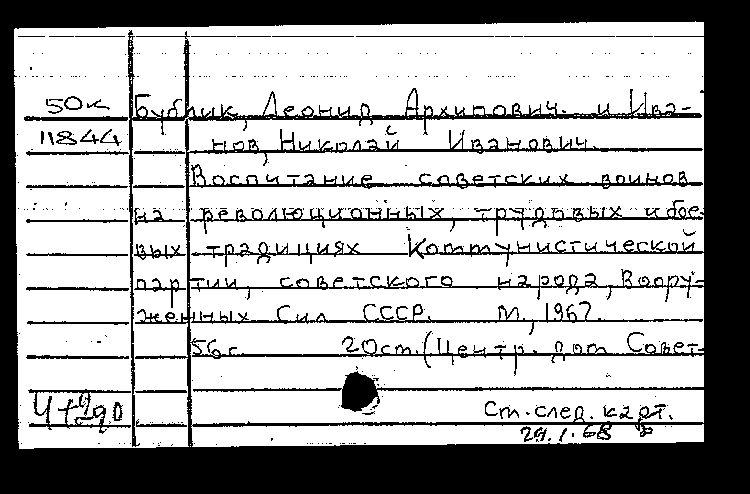 50к Бублик, Леонид Архипович. и Ива-
11844 нов, Николай Иванович.
Воспитание советских воинов
на революционных, трудовых и бое-
вых традициях Коммунистической
партии, советского народа, Воору-
женных Сил СССР. М., 1967.
56 с. 20см. (Центр. дом Совет-
См. след. карт.
29.1.68